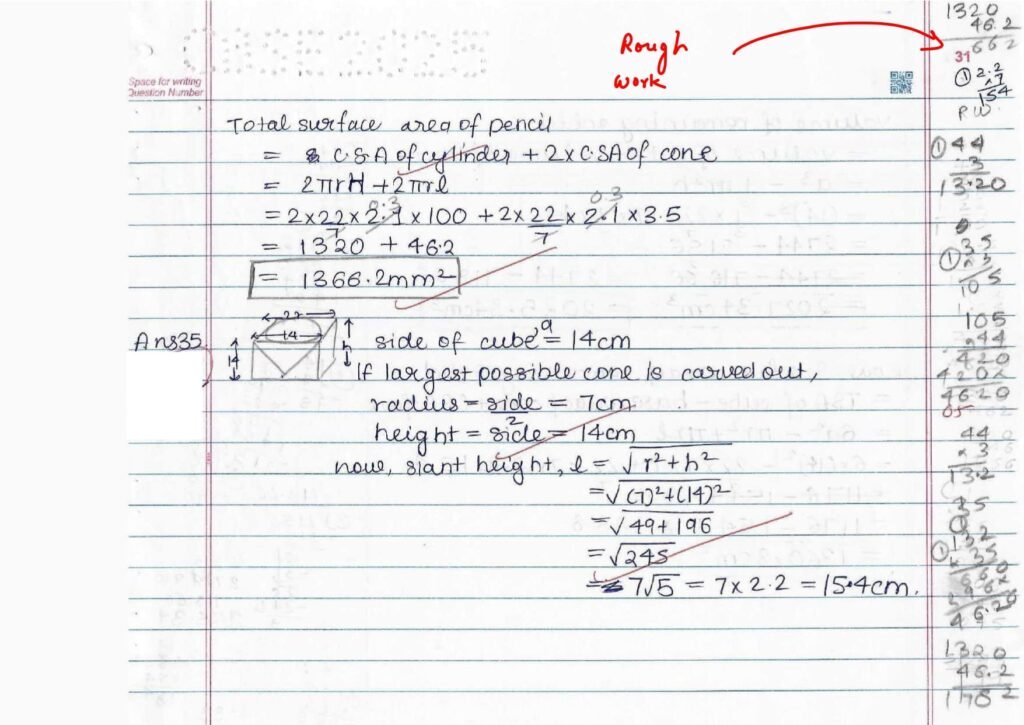 Rough
work
Space for writing
Question Number
Total surface area of pencil
= C.S.A of cylinder + 2 x C.SA of cone
= 2πrH + 2πrl
= 2x22/7 x 2.1 x 100 + 2x22/7 x 2.1 x 3.5
0.3 0.3
= 1320 + 46.2
= 1366.2mm²
Ans35. side of cube a = 14cm
14
14
h
If largest possible cone is carved out,
radius = side/2 = 7cm
height = side = 14cm
now, slant height, l = √r²+h²
= √(7)²+(14)²
= √49+196
= √245
= 7√5 = 7x2.2 = 15.4cm.
1320
46.2
31
2.2
x7
154
R W
44
.3
13.20
35
x.3
105
105
.44
420
4202
4620
44
x.3
13.2
35
132
x.35
660
46.20
1320
46.2